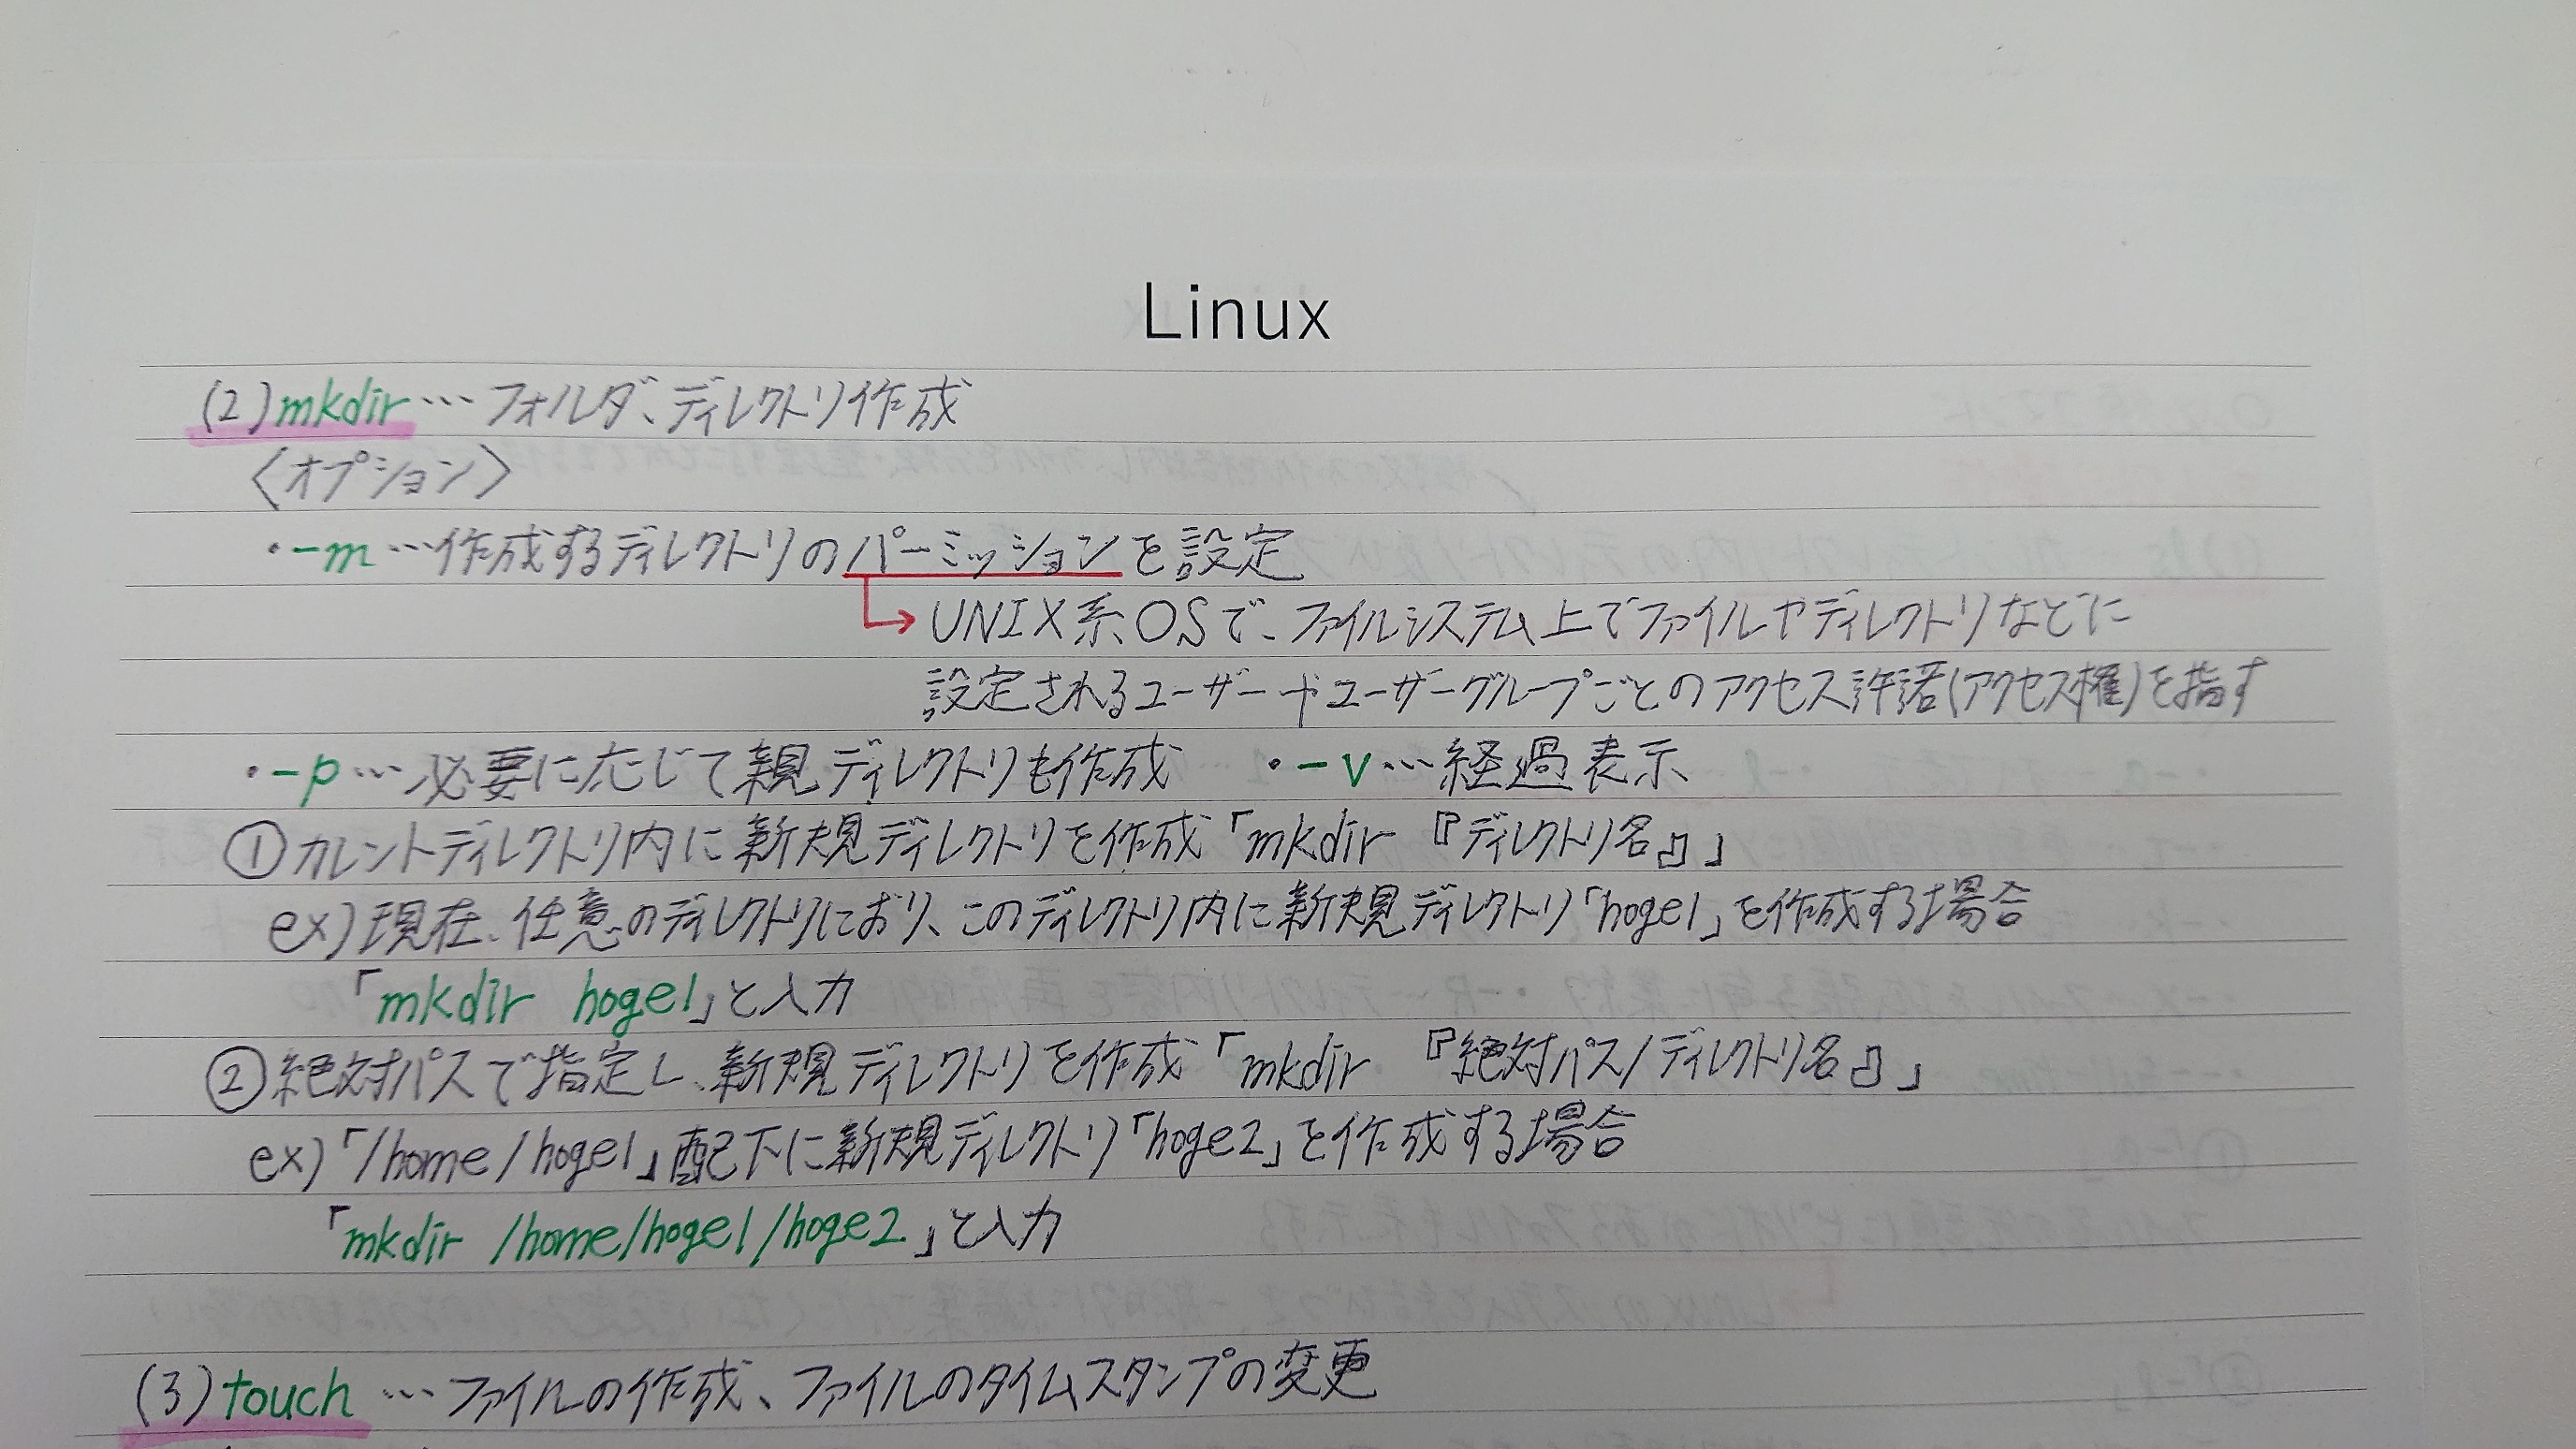 Linux
(2)mkdir…フォルダ、ディレクトリ作成
〈オプション〉
・-m…作成するディレクトリのパーミッションを設定
UNIX系OSで、ファイルシステム上でファイルやディレクトリなどに
設定されるユーザーやユーザーグループごとのアクセス許諾(アクセス権)を指す
・-p…必要に応じて親ディレクトリも作成 ・-v…経過表示
①カレントディレクトリ内に新規ディレクトリを作成「mkdir 『ディレクトリ名』」
ex)現在、任意のディレクトリにおり、このディレクトリ内に新規ディレクトリ「hoge1」を作成する場合
「mkdir hoge1」と入力
②絶対パスで指定し、新規ディレクトリを作成「mkdir 『絶対パス/ディレクトリ名』」
ex)「/home/hoge1」配下に新規ディレクトリ「hoge2」を作成する場合
「mkdir /home/hoge1/hoge2」と入力
(3)touch…ファイルの作成、ファイルのタイムスタンプの変更